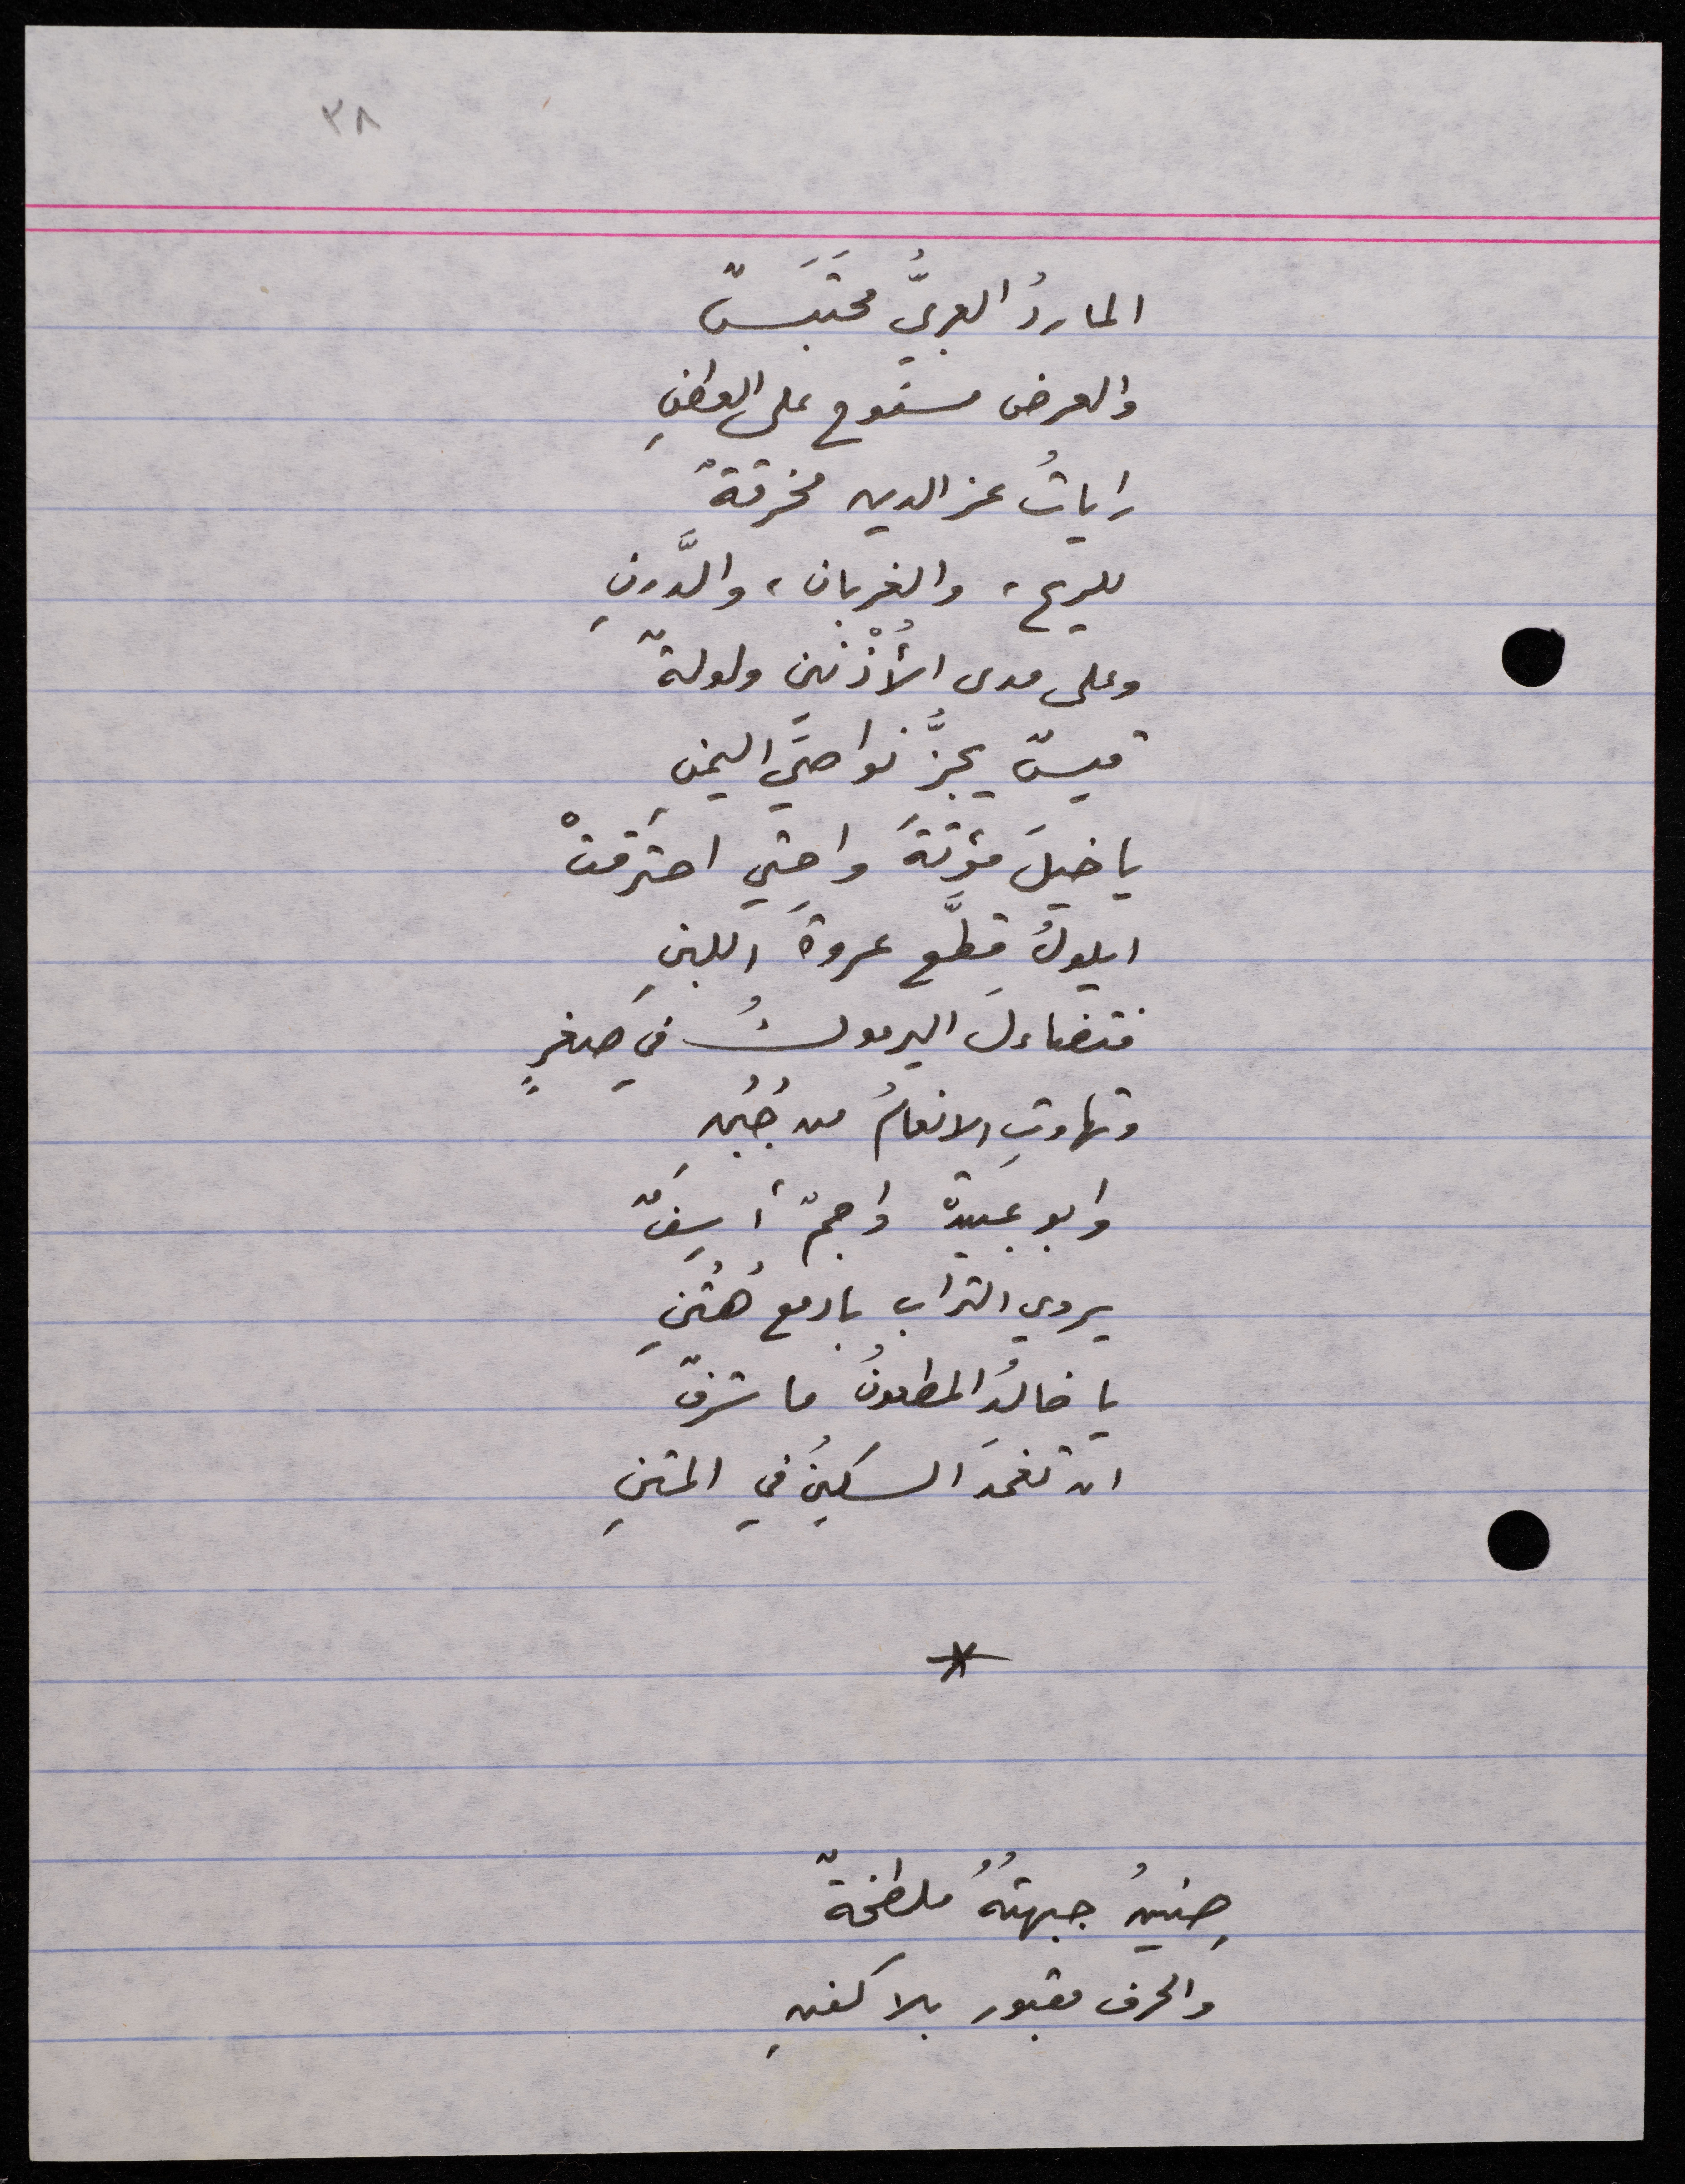 ٣٨
الماردُ العربيُّ محتَبَسٌ
والعرض مسفوح على العطنِ
راياتُ عز الدين مخرقةٌ
للريح، والغربان، والدَّرنِ
وعلى مدى الأُذْنين ولولةٌ
قيسٌ يجزُّ نواصيَ اليمنِ
يا خيلَ مؤتةَ واحتي احترقتْ
ايلولُ قطَّع عروةَ اللبنِ
فتضاءلَ اليرموكُ في صِغرٍ
وتهاوتِ الانغامُ من جُبُنِ
وابو عبيدة واجمٌ أَسِفٌ
يروي التراب بادمع هُتُنِ
يا خالدُ المطعونُ ما شرفٌ
ان تغمدَ السكينُ في المتنِ
*
حِنينُ جبهتُهُ ملطخةٌ
والحرف مقبور بلا كفنِ